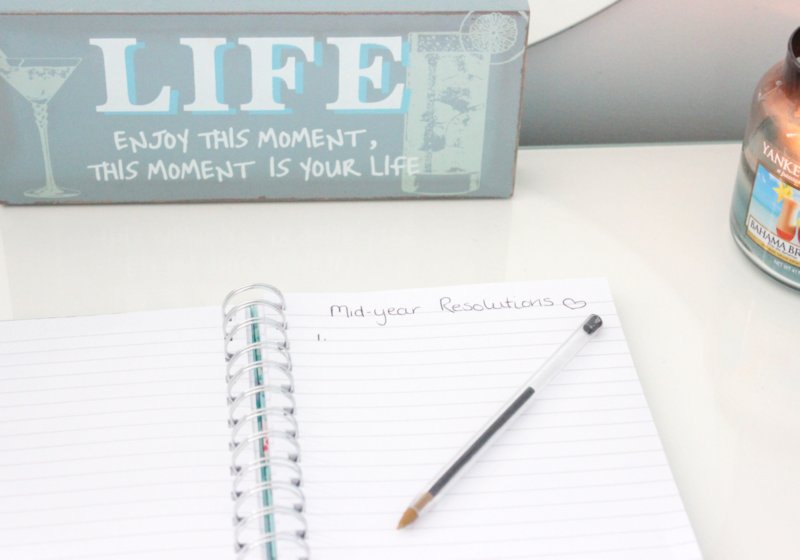 LIFE
ENJOY THIS MOMENT,
THIS MOMENT IS YOUR LIFE
YANKE
BAHAMA BR
NET WT
Mid-year Resolutions ♡
1.